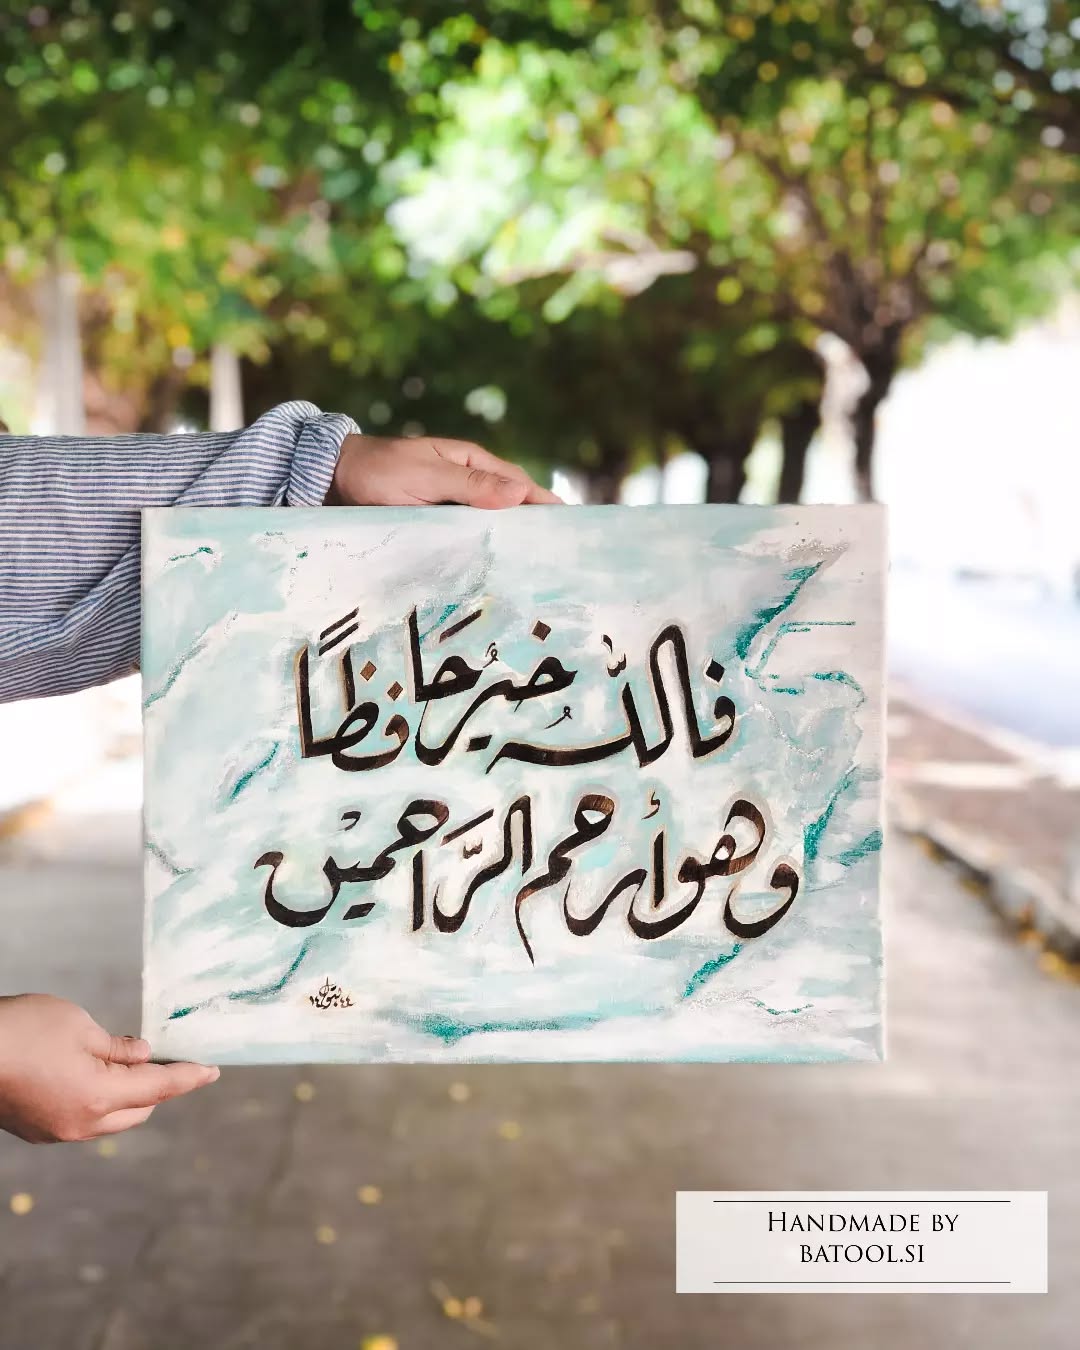 فالله خير حَافظًا
وهو أرحم الرَّاحمين
بتول ١٤٤٤
HANDMADE BY
BATOOL.SI